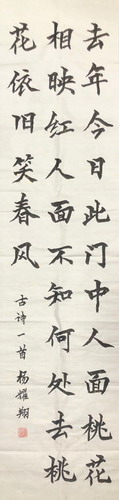 去年今日此门中人面桃花
相映红人面不知何处去桃
花依旧笑春风
古诗一首杨耀翔